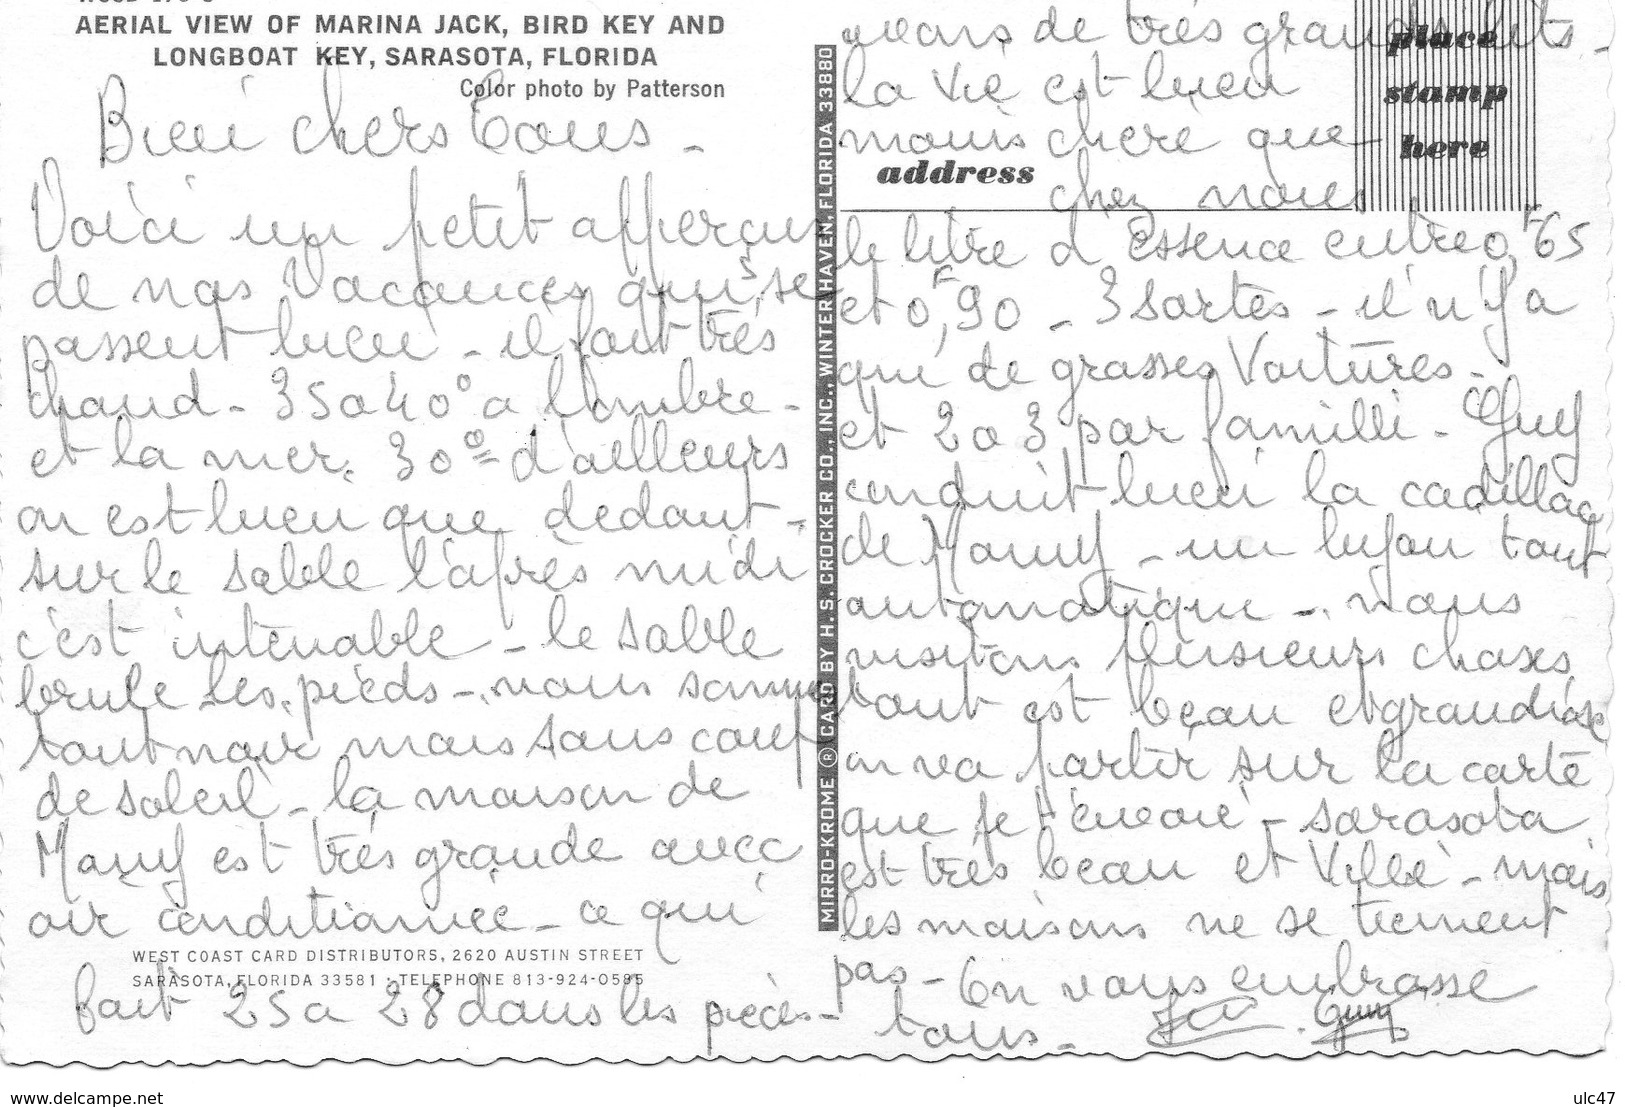 AERIAL VIEW OF MARINA JACK, BIRD KEY AND
LONGBOAT KEY, SARASOTA, FLORIDA
Color photo by Patterson
Bien chers Tous -
Voici un petit apperçu
de nos Vacances qui se
passent bien - il fait très
chaud - 35 a 40° a l'ombre -
et la mer. 30° = d'ailleurs
on est bien que dedant -
sur le sable l'après midi
c'est intenable - le sable
brule les pieds - nous sommes
tout noir mais sans coup
de soleil - la maison de
Mamy est très grande avec
air conditiannée - ce qui
fait 25 a 28 dans les pièces -
WEST COAST CARD DISTRIBUTORS, 2620 AUSTIN STREET
SARASOTA, FLORIDA 33581 · TELEPHONE 813-924-0585
MIRRO-KROME ® CARD BY H.S. CROCKER CO., INC., WINTER HAVEN, FLORIDA 33880
place
stamp
here
address
avons de très grands lits -
la vie est bien
moins chère que
chez nous
le litre d'Essence entre 0,F65
et 0,F90 - 3 sortes - il n'y a
que de grosses Voitures -
et 2 a 3 par famille - Guy
conduit bien la cadillac
de Mamy - un bijou tout
automatique - nous
visitons plusieurs choses
tout est beau et grandiose
on va partir sur la carte
que je t'envoie - Sarasota
est très beau et Ville - mais
les maisons ne se tiennent
pas - On vous embrasse
tous - Guy
ulc47
www.delcampe.net